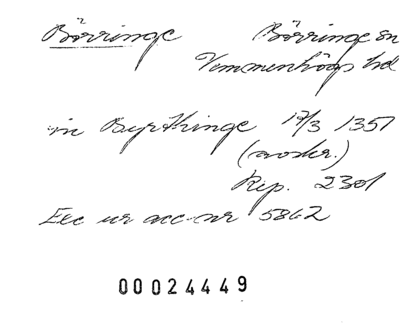 Börringe Börringe sn
Vemmenhögs hd
in Byrthinge 17/3 1351
(avskr.)
Rep. 2301
Exc ur acc nr 5862
00024449